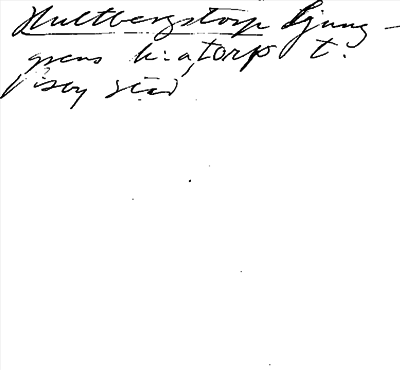 Hultbergstorp Ljung-
grens k:a, torp t.
Visby stad